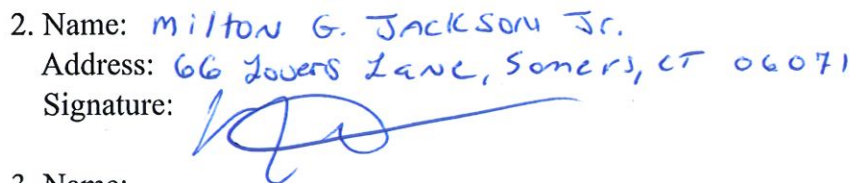 2. Name: Milton G. Jackson Jr.
Address: 66 Lovers Lane, Somers, CT 06071
Signature:
3. Name: